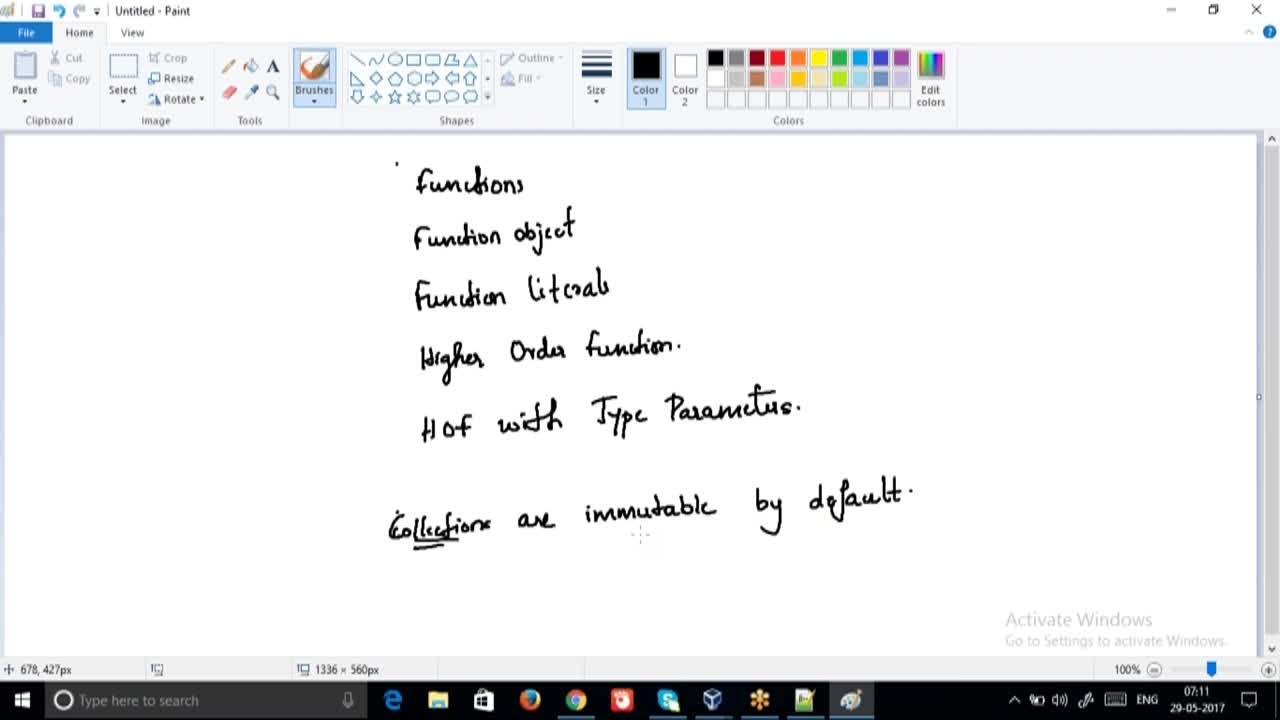 Untitled - Paint
File Home View
Paste Cut Copy Clipboard
Select Crop Resize Rotate Image
Tools
Brushes
Outline Fill Shapes
Size
Color 1 Color 2 Edit colors Colors
Functions
Function object
Function literals
Higher Order function.
HOF with Type Parameters.
Collections are immutable by default.
Activate Windows
Go to Settings to activate Windows.
678, 427px 1336 × 560px 100%
Type here to search
ENG
07:11
29-05-2017